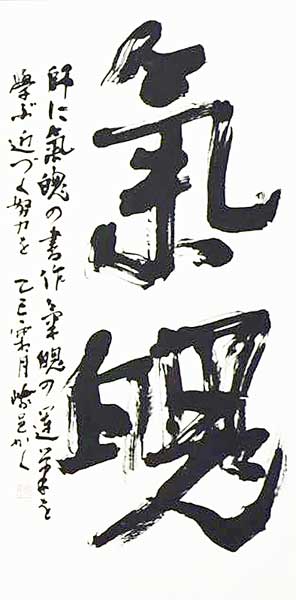 氣魄
師に氣魄の書作氣魄の運筆を
學ぶ近づく努力を 乙巳霜月 かく